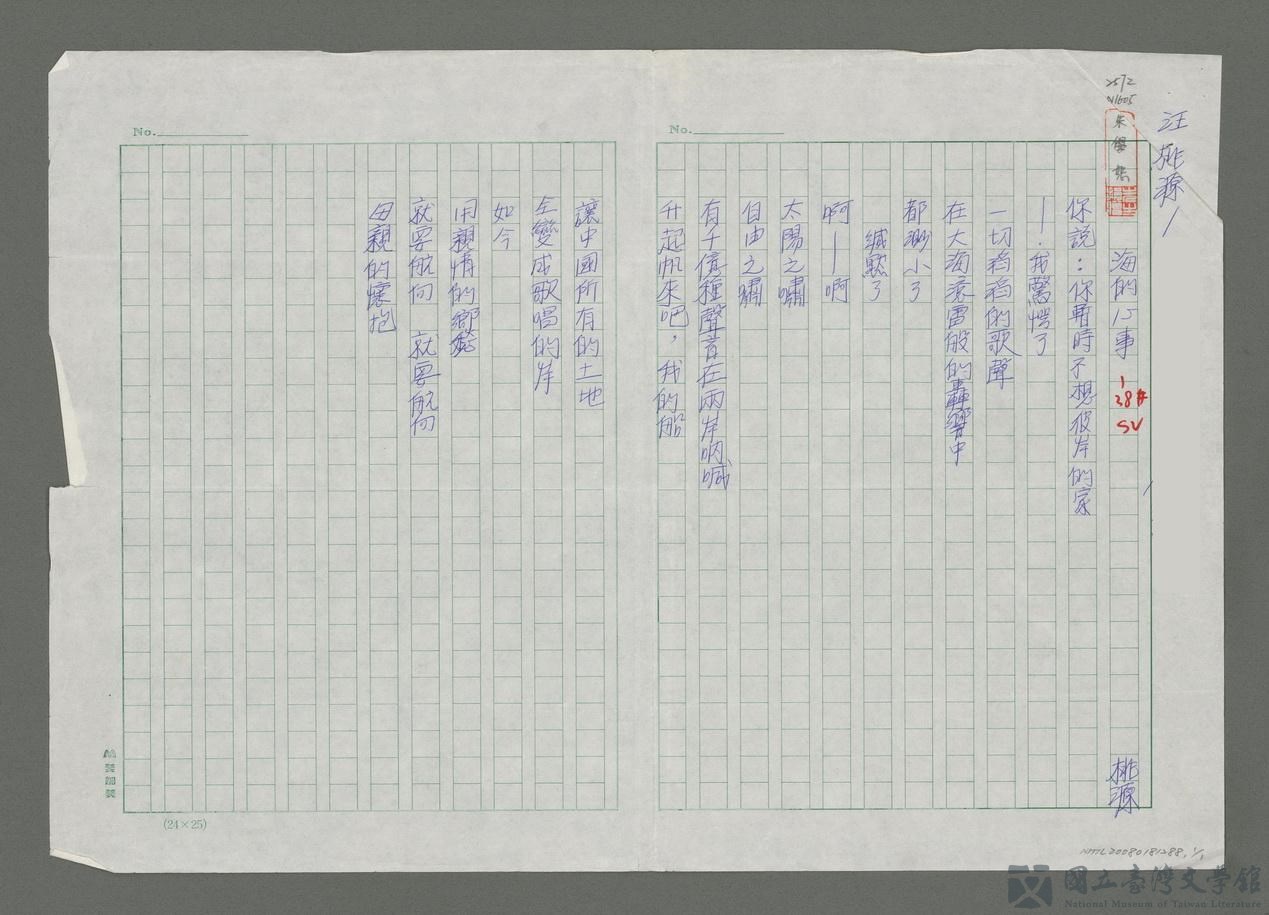 汪桃源
2572
海的心事
桃源
你說：你暫時不想彼岸的家
—.我驚愕了
一切稻稻的歌聲
在大海滾雷般的轟響中
都渺小了
緘默了
啊—啊
太陽之嘯
自由之嘯
有千億種聲音在兩岸吶喊
升起帆來吧，我的船
讓中國所有的土地
全變成歌唱的岸
如今
用親情的鄉愁
就要航向　就要航向
母親的懷抱
No.
No.
(24×25)
NMTL20080181288, 1/1
國立臺灣文學館
National Museum of Taiwan Literature